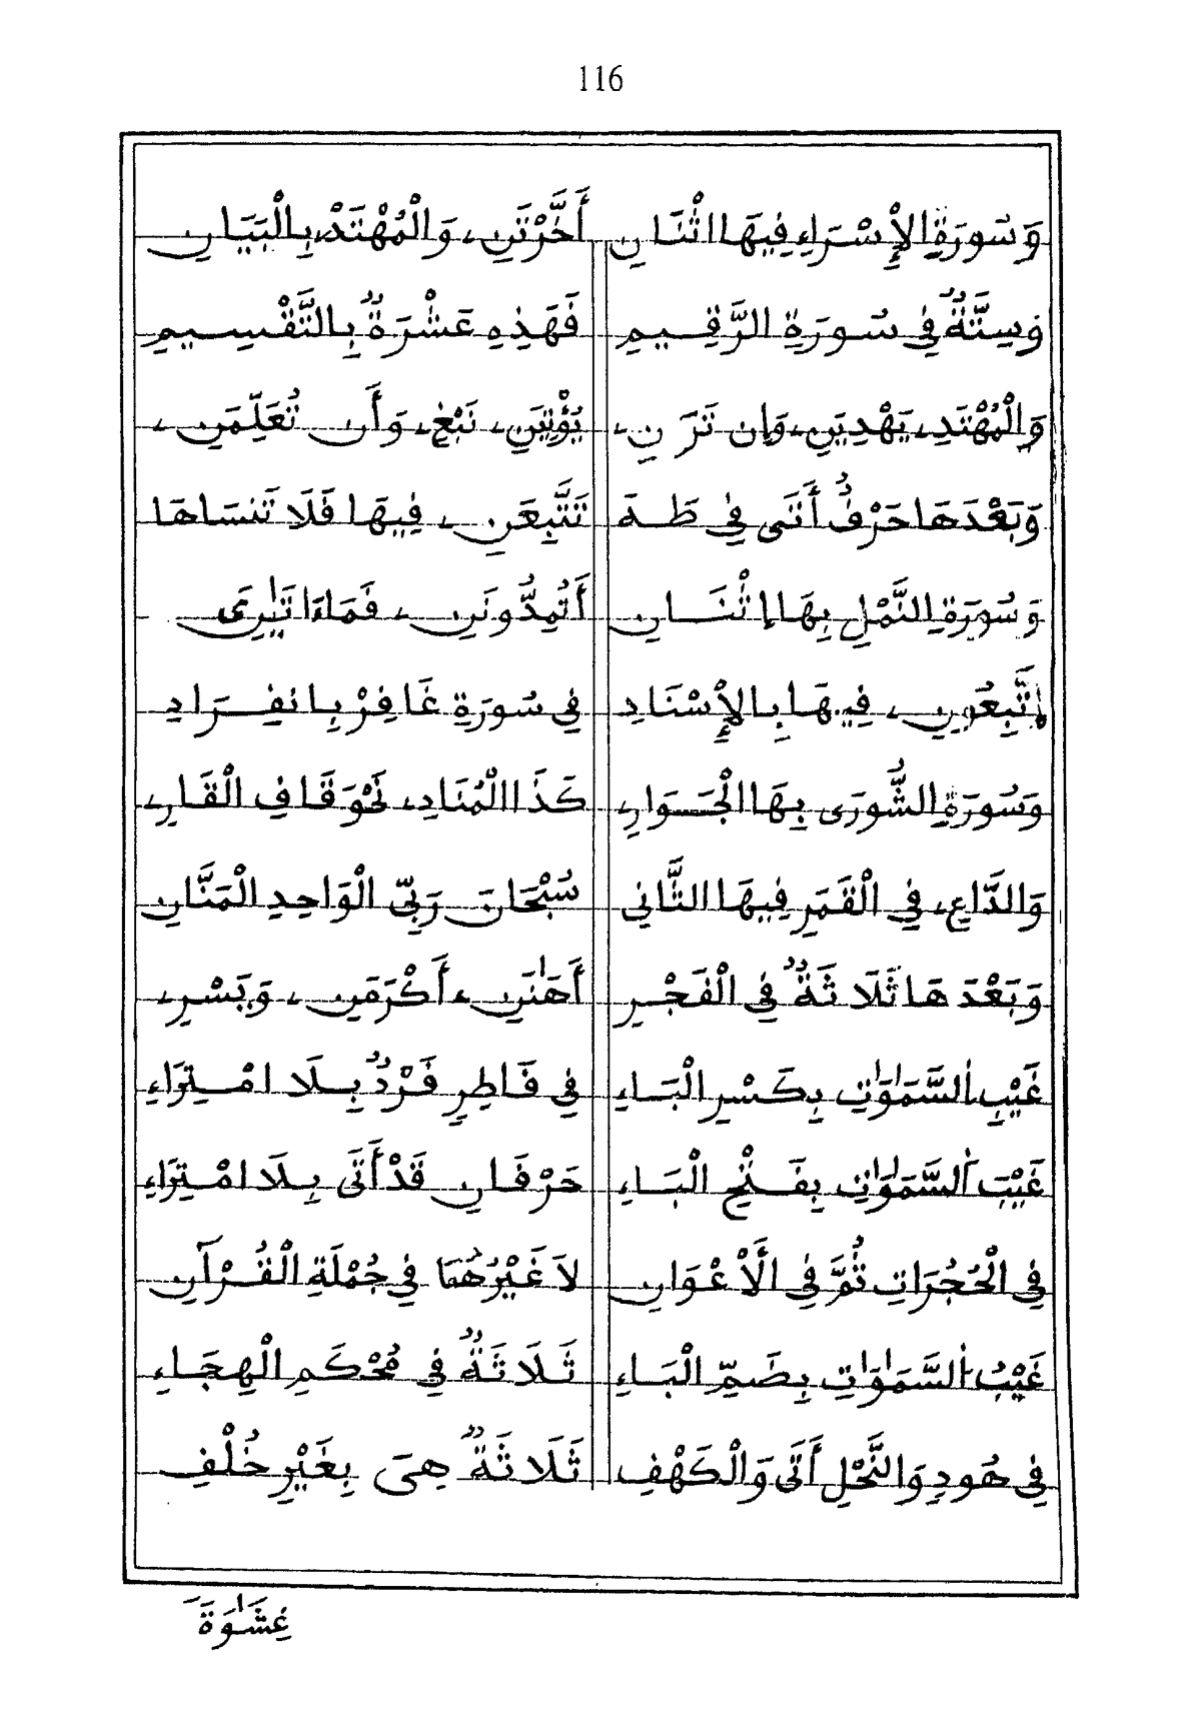 116
وَسُورَةِ الإِسْرَاءِ فِيهَا اثْنَانِ أَخَّرْتَنِ وَالْمُهْتَدْ بِالْبَيَانِ
وَسِتَّةٌ فِي سُورَةِ الرَّقِيمِ فَهَذِهِ عَشْرَةٌ بِالتَّقْسِيمِ
وَالْمُهْتَدِ، يَهْدِيَنِ، وَإِن تَرَنِ، يُؤْتِيَنِ، نَبْغِ، وَأَن تُعَلِّمَنِ،
وَبَعْدَهَا حَرْفٌ أَتَى فِي طَهَ تَتَّبِعَنِ، فِيهَا فَلَا تَنسَاهَا
وَسُورَةِ النَّمْلِ بِهَا إثْنَانِ أَتُمِدُّونَنِ، فَمَاءَاتَٰنِىَ
اِتَّبِعُونِ، فِيهَا بِالإِسْنَادِ فِي سُورَةِ غَافِرْ بِانفِرَادِ
وَسُورَةِ الشُّورَى بِهَا الْجَوَارِ، كَذَا الْمُنَادِ، نَحْوَ قَافِ الْقَارِ،
وَالدَّاعِ، فِي الْقَمَرِ فِيهَا الثَّانِي سُبْحَانَ رَبِّي الْوَاحِدِ الْمَنَّانِ
وَبَعْدَهَا ثَلَاثَةٌ فِي الْفَجْرِ أَهَٰنَنِ، أَكْرَمَنِ، وَيَسْرِ،
غَيْبِ اَلسَّمَٰوَٰتِ بِكَسْرِ الْبَاءِ فِي فَاطِرٍ فَرْدٌ بِلَا امْتِرَاءِ
غَيْبَ اَلسَّمَٰوَٰتِ بِفَتْحِ الْبَاءِ حَرْفَانِ قَدْ أَتَى بِلَا امْتِرَاءِ
فِي الْحُجُرَاتِ ثُمَّ فِي الَأعْوَانِ لاَ غَيْرُهُمَا فِي جُمْلَةِ الْقُرْآنِ
غَيْبُ اَلسَّمَٰوَٰتِ بِضَمِّ الْبَاءِ ثَلَاثَةٌ فِي مُحْكَمِ الْهِجَاءِ
فِي هُودٍ وَالنَّحْلِ أَتَى وَالْكَهْفِ ثَلَاثَةٌ هِيَ بِغَيْرِ خُلْفِ
غِشَٰوَةً